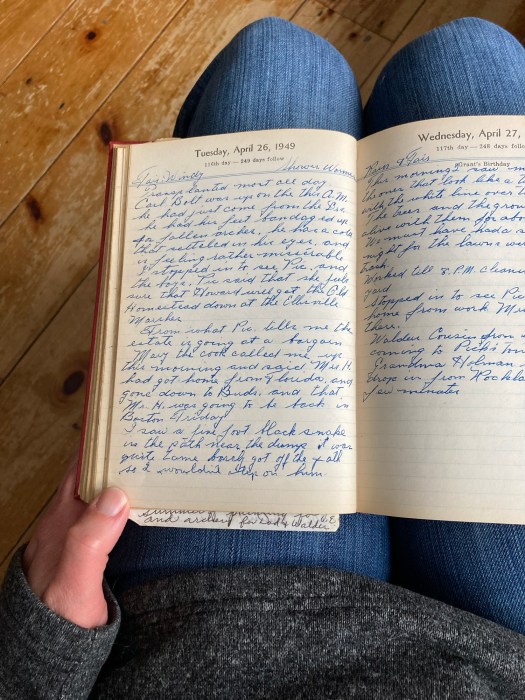 Tuesday, April 26, 1949
116th day — 249 days follow
Fair Windy
most all day
Carl Bolt was up on the this A.M.
he had just come from the
he had his feet bandaged up
for fallen arches, he has a cold
that settled in his eyes, and
is feeling rather miserable,
I stopped in to see Pic, and
the boys, Pic said that she felt
sure that Howard will get the Old
Homestead down at the
From what Pic. tells me the
estate is going at a bargain
May the cook called me up
this morning and said Mrs H.
had got home from Florida, and
gone down to Buds. and that
Mr. H. was going to be back in
Boston Friday
I saw a five foot black snake
in the path near the dump it was
quite tame barely got off the path
so I wouldn't step on him.
and archery for
Wednesday, April 27,
117th day — 248 days follo
Grant's Birthday
Rain & Fair
This morning saw
that look like a
with the white
The trees and the grou
alive with them, for abo
We must have had a
night for the lawns we
Worked till 8. P.M. cleane
yard
Stopped in to see Pic
home from work
there.
Walder Cousin from
coming to Pick's
Grandma Holman
drop in from
few minutes